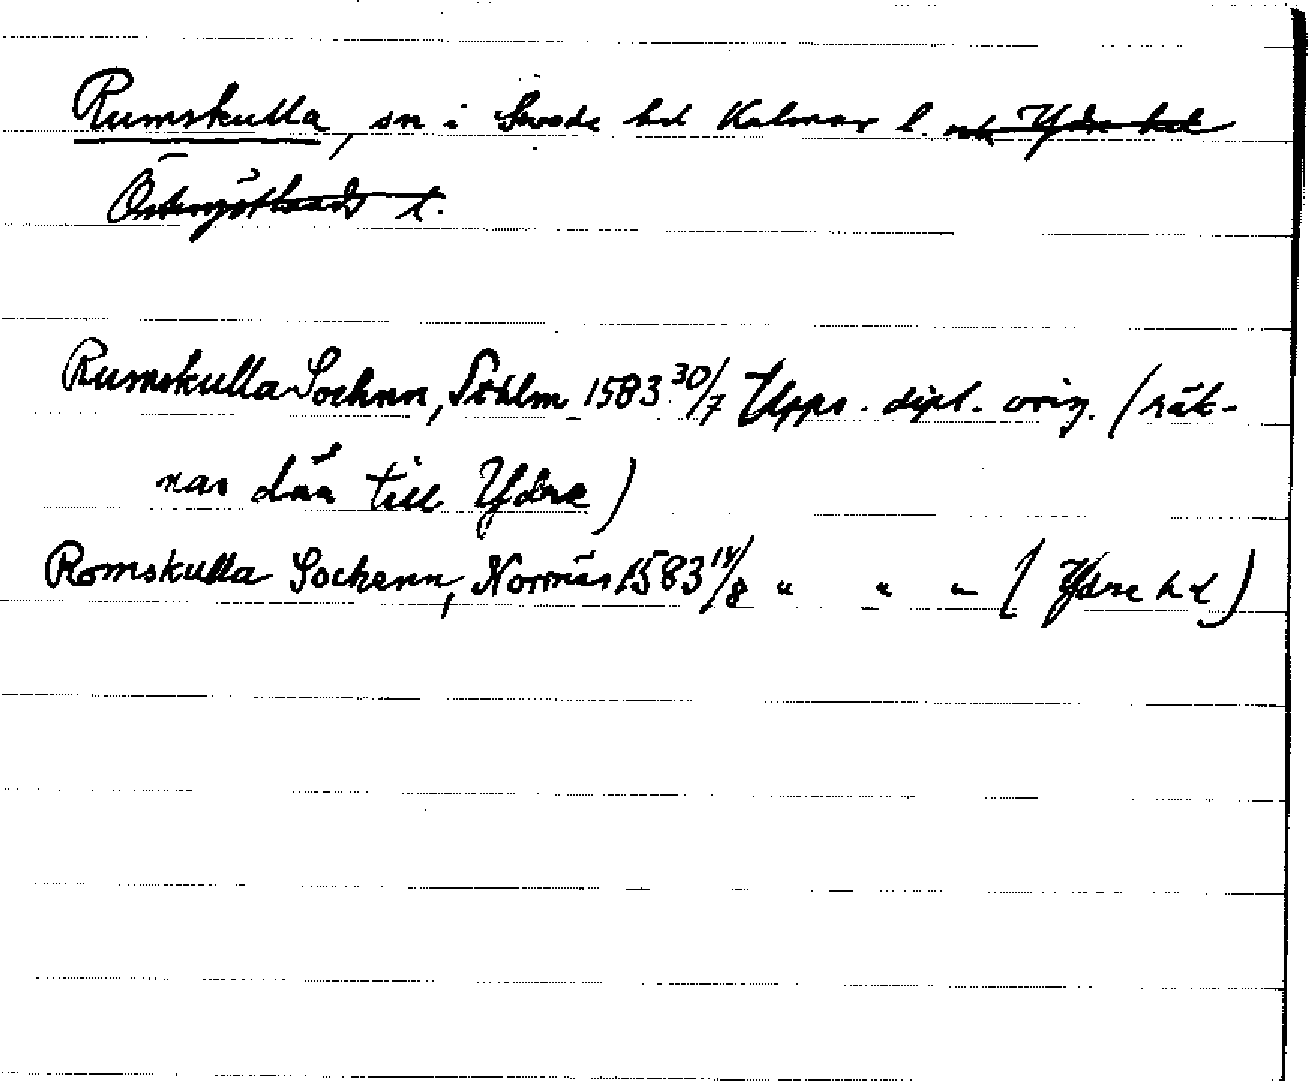 Rumskulla, sn i Sevede hd Kalmar l. och Ydre hd
Östergötlands l.
Rumskulla Sochnn, Sthlm 1583 30/7 Upps. dipl. orig. (räk-
nas där till Ydre)
Romskulla Sochenn, Norrnäs 1583 14/8 " " " (Ydre hd)